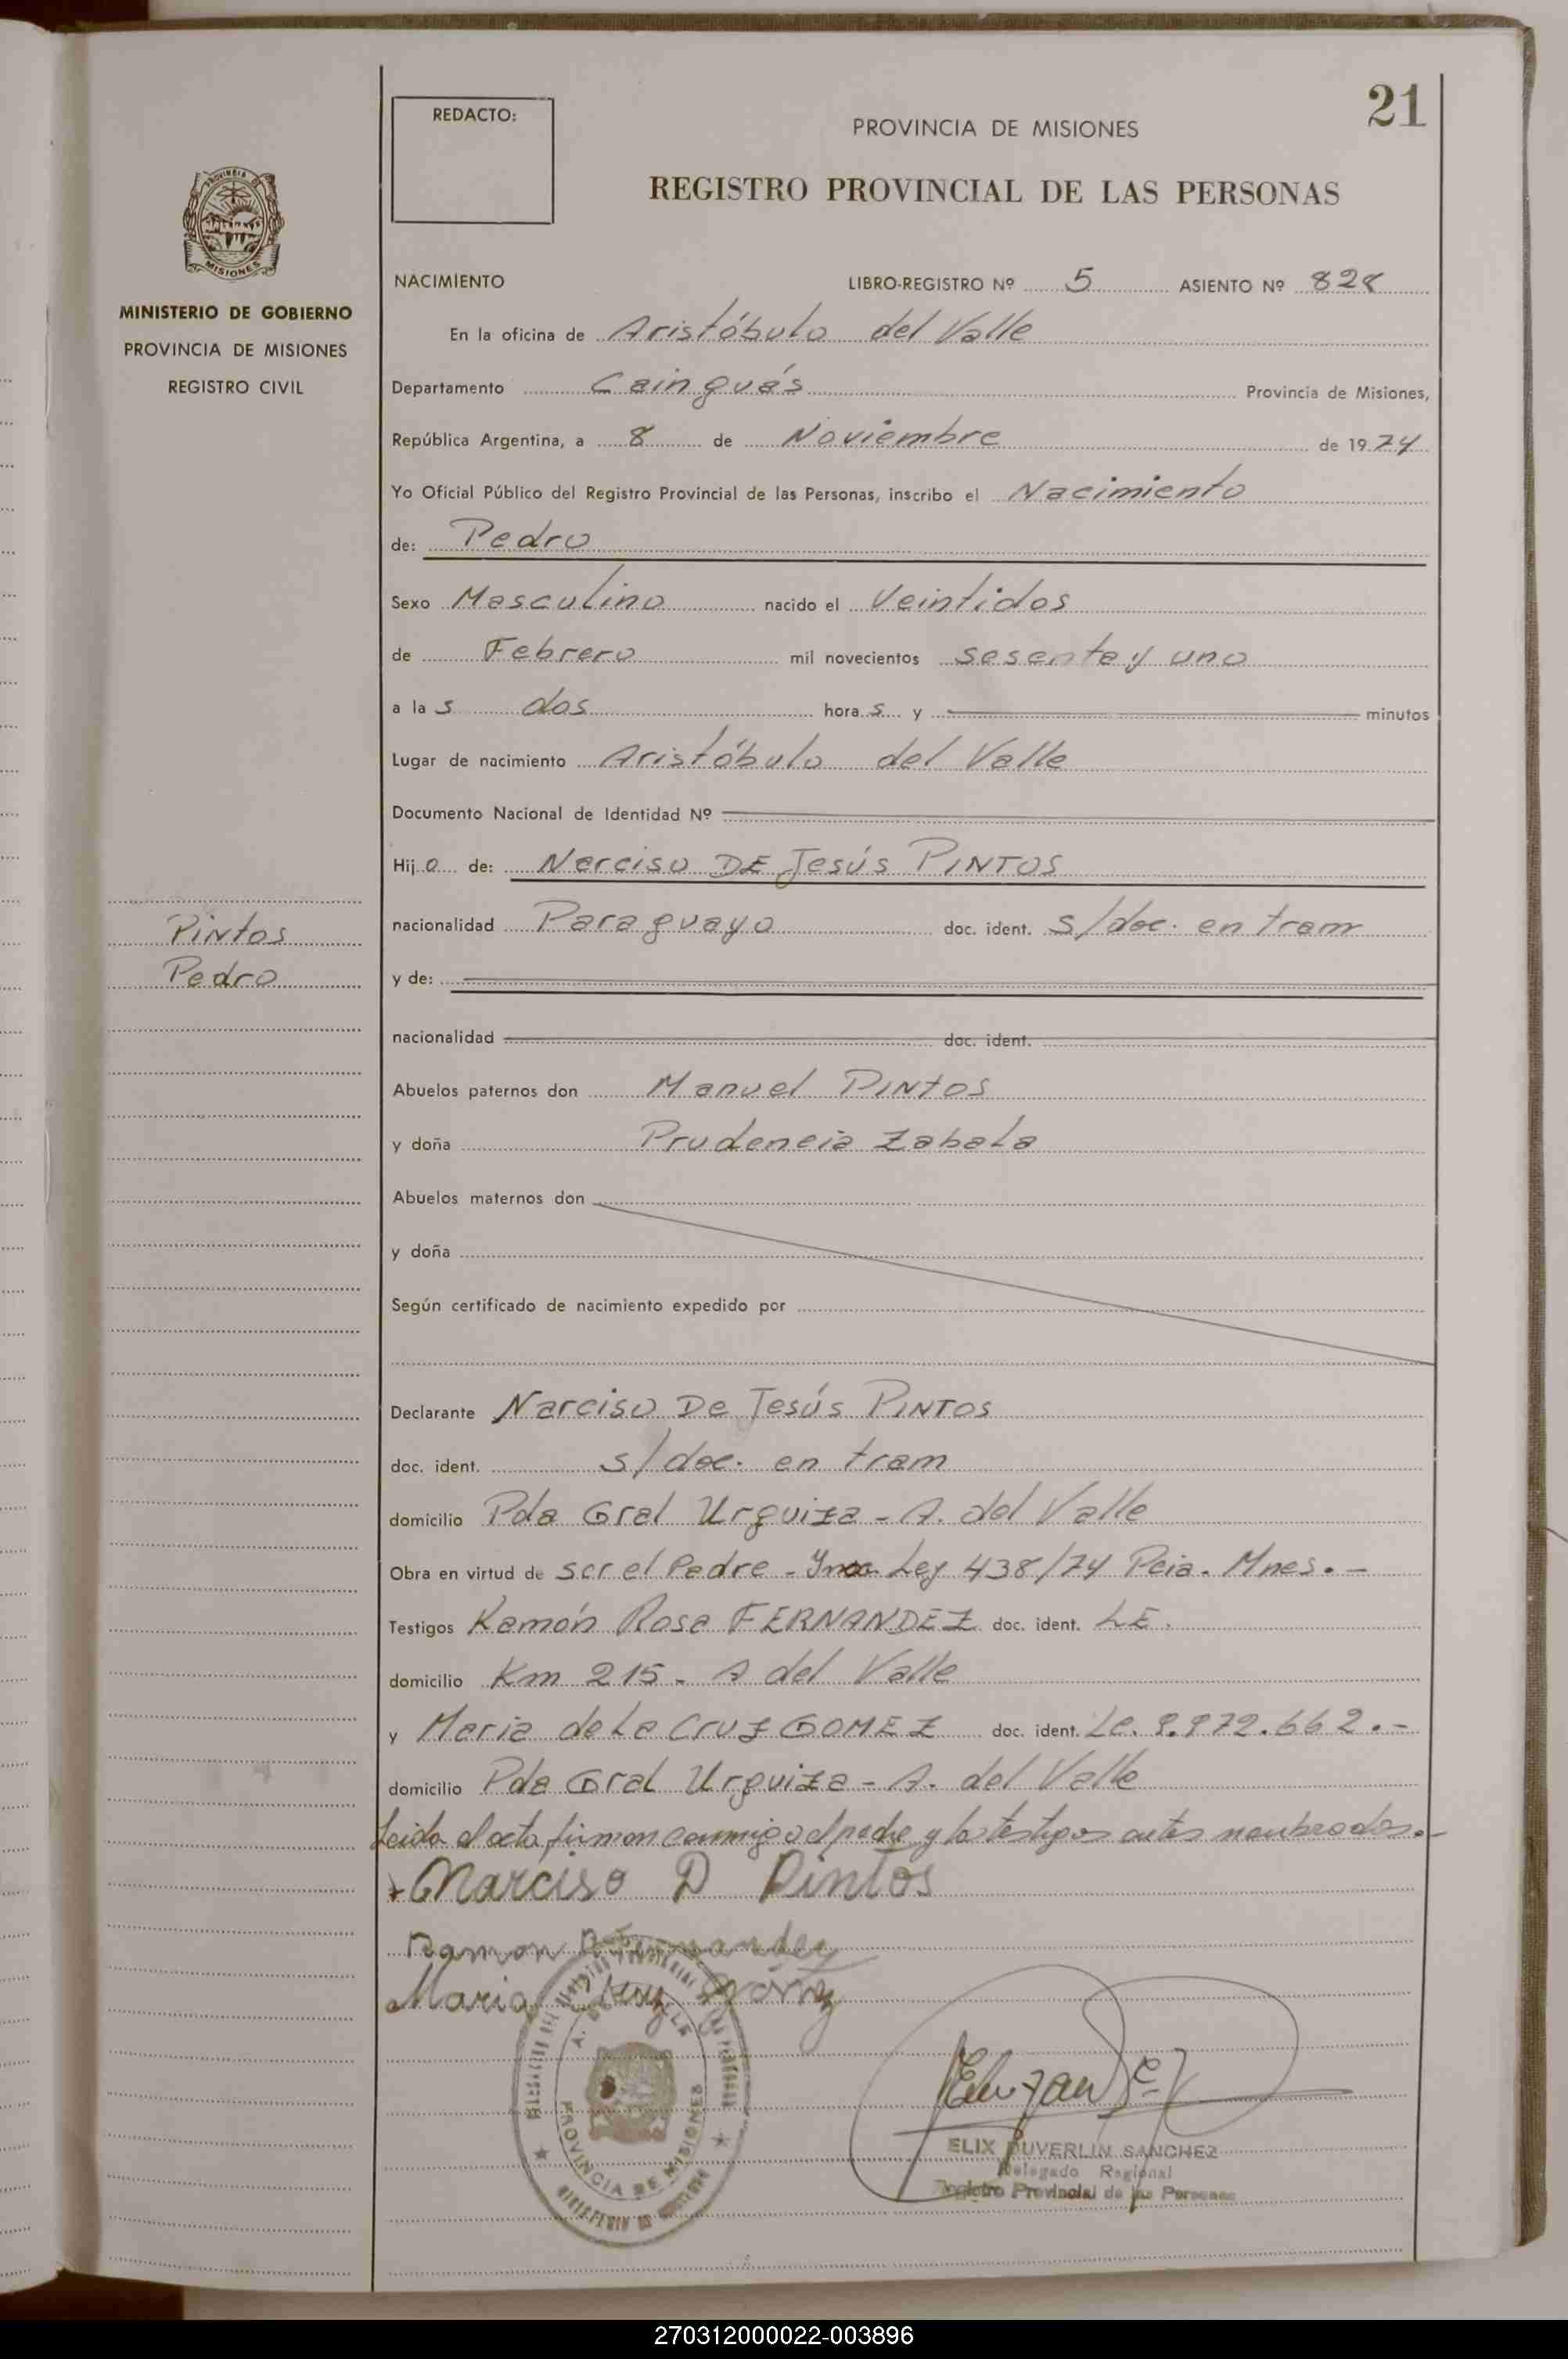 21
REDACTO:
PROVINCIA DE MISIONES
REGISTRO PROVINCIAL DE LAS PERSONAS
MISIONES
MINISTERIO DE GOBIERNO
PROVINCIA DE MISIONES
REGISTRO CIVIL
NACIMIENTO LIBRO-REGISTRO Nº 5 ASIENTO Nº 828
En la oficina de Aristóbulo del Valle
Departamento Cainguás Provincia de Misiones,
República Argentina, a 8 de Noviembre de 1974
Yo Oficial Público del Registro Provincial de las Personas, inscribo el Nacimiento
de: Pedro
Sexo Masculino nacido el Veintidos
de Febrero mil novecientos sesenta y uno
a las dos horas y minutos
Lugar de nacimiento Aristóbulo del Valle
Documento Nacional de Identidad Nº
Hijo de: Narciso DE Jesús PINTOS
nacionalidad Paraguayo doc. ident. s/doc. en tram
Pintos
Pedro
y de:
nacionalidad doc. ident.
Abuelos paternos don Manuel PINtOS
y doña Prudencia Zabala
Abuelos maternos don
y doña
Según certificado de nacimiento expedido por
Declarante Narciso De Jesús PINTOS
doc. ident. s/doc. en tram
domicilio Pda Gral Urquiza - A. del Valle
Obra en virtud de ser el Padre - Ley 438/74 Pcia. Mnes. -
Testigos Ramón Rosa FERNANDEZ doc. ident. LE.
domicilio Km 215 - A del Valle
y Maria de La Cruz GOMEZ doc. ident. Lc. 9.972.662.-
domicilio Pda Gral Urquiza - A. del Valle
Leida el acta, firman conmigo el padre y los testigos antes nombrados.-
Narciso D Pintos
Ramon R Fernandez
Maria Cruz Gómez
PROVINCIA DE MISIONES
ELIX DUVERLIN SANCHEZ
Delegado Regional
Registro Provincial de las Personas
270312000022-003896